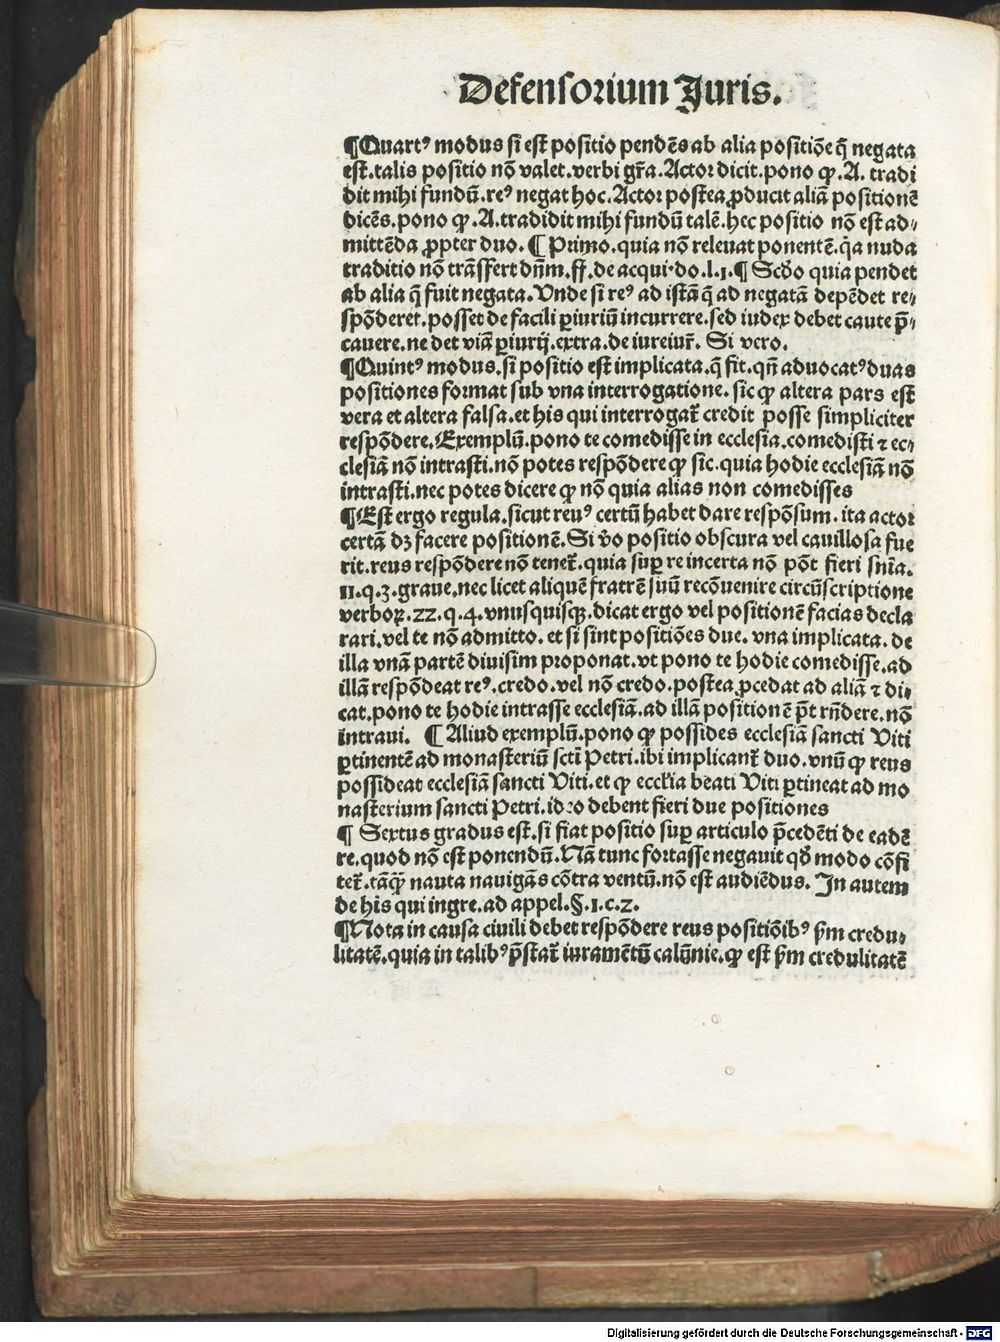 Defensorium Juris.
¶Quartꝰ modus si est positio pendēs ab alia positiōe q̄ negata
est. talis positio nō valet. verbi gr̄a. Actor dicit. pono ꝙ .A. tradi
dit mihi fundū. reꝰ negat hoc. Actor postea ꝓducit aliā positionē
dicēs. pono ꝙ .A. tradidit mihi fundū talē. hec positio nō est ad⸗
mittēda ꝓpter duo. ¶ Primo. quia nō releuat ponentē. q̄a nuda
traditio nō trāsfert dn̄m. ff. de acqui. do. l. 1. ¶ Scd̄o quia pendet
ab alia q̄ fuit negata. Vnde si reꝰ ad istā q̄ ad negatā depēdet re⸗
spōderet. posset de facili ꝑiuriū incurrere. sed iudex debet caute p̄⸗
cauere. ne det viā ꝑiurij. extra. de iureiur̄. Si vero.
¶Quintꝰ modus. si positio est implicata. q̄ fit. qn̄ aduocatꝰ duas
positiones format sub vna interrogatione. sic ꝙ altera pars est
vera et altera falsa. et his qui interrogat̄ credit posse simpliciter
respōdere. Exemplū. pono te comedisse in ecclesia. comedisti ⁊ ec⸗
clesiā nō intrasti. nō potes respōdere ꝙ sic. quia hodie ecclesiā nō
intrasti. nec potes dicere ꝙ nō quia alias non comedisses
¶Est ergo regula. sicut reuꝰ certū habet dare respōsum. ita actor
certā dꝫ facere positionē. Si v̄o positio obscura vel cauillosa fue
rit. reus respōdere nō tenet̄. quia suꝑ re incerta nō pōt fieri sn̄ia.
11. q. 3. graue. nec licet aliquē fratrē suū recōuenire circūscriptione
verboꝝ. 22. q. 4. vnusquisqꝫ. dicat ergo vel positionē facias decla
rari. vel te nō admitto. et si sint positiōes due. vna implicata. de
illa vnā partē diuisim proponat. vt pono te hodie comedisse. ad
illā respōdeat reꝰ. credo. vel nō credo. postea ꝓcedat ad aliā ⁊ di⸗
cat. pono te hodie intrasse ecclesiā. ad illā positionē p̄t rn̄dere. nō
intraui. ¶ Aliud exemplū. pono ꝙ possides ecclesiā sancti Viti
ꝑtinentē ad monasteriū scti Petri. ibi implicant̄ duo. vnū ꝙ reus
possideat ecclesiā sancti Viti. et ꝙ eccl̄ia beati Viti ꝑtineat ad mo
nasterium sancti Petri. ideo debent fieri due positiones
¶ Sextus gradus est. si fiat positio suꝑ articulo p̄cedēti de eadē
re. quod nō est ponendū. Nā tunc fortasse negauit qd̄ modo cōfi
tet̄. tāꝙ̄ nauta nauigās cōtra ventū. nō est audiēdus. In autem
de his qui ingre. ad appel. §. 1. c. 2.
¶Nota in causa ciuili debet respōdere reus positiōibꝰ ẜm credu⸗
litatē. quia in talibꝰ p̄stat̄ iuramētū calūnie. ꝙ est ẜm credulitatē
Digitalisierung gefördert durch die Deutsche Forschungsgemeinschaft - DFG